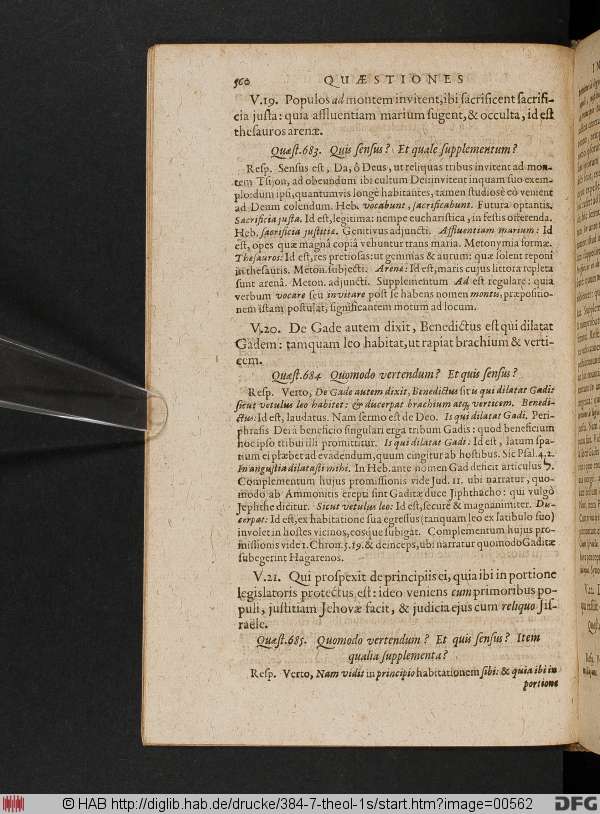 560 QUÆSTIONES
V.19. Populos ad montem invitent, ibi sacrificent sacrifi-
cia justa: quia affluentiam marium sugent, & occulta, id est
thesauros arenæ.
Quæst. 683. Quis sensus? Et quale supplementum?
Resp. Sensus est, Da, ô Deus, ut reliquas tribus invitent ad mon-
tem Tsijon, ad obeundum ibi cultum Dei: invitent inquam suo exem-
plo: dum ipsi, quantumvis longè habitantes, tamen studiosè eò venient
ad Deum colendum. Heb. vocabunt, sacrificabunt. Futura optantis.
Sacrificia justa. Id est, legitima: nempe eucharistica, in festis offerenda.
Heb. sacrificia justitiæ. Genitivus adjuncti. Affluentiam marium: Id
est, opes quæ magnâ copiâ vehuntur trans maria. Metonymia formæ.
Thesauros: Id est, res pretiosas: ut gemmas & aurum: quæ solent reponi
in thesauris. Meton. subjecti. Arenæ: Id est, maris cujus littora repleta
sunt arenâ. Meton. adjuncti. Supplementum Ad est regulare: quia
verbum vocare seu invitare post se habens nomen montis, præpositio-
nem istam postulat, significantem motum ad locum.
V.20. De Gade autem dixit, Benedictus est qui dilatat
Gadem: tamquam leo habitat, ut rapiat brachium & verti-
cem.
Quæst. 684 Quomodo vertendum? Et quis sensus?
Resp. Verto, De Gade autem dixit, Benedictus sit is qui dilatat Gadi:
sicut vetulus leo habitet: & discerpat brachium atq; verticem. Benedi-
ctus: Id est, laudatus. Nam sermo est de Deo. Is qui dilatat Gadi. Peri-
phrasis Dei à beneficio singulari erga tribum Gadis: quod beneficium
hoc ipso tribui illi promittitur. Is qui dilatat Gadi: Id est, latum spa-
tium ei præbet ad evadendum, quum cingitur ab hostibus. Sic Psal. 4.2.
In angustia dilatasti mihi. In Heb. ante nomen Gad deficit articulus ל.
Complementum hujus promissionis vide Jud. 11. ubi narratur, quo-
modo ab Ammonitis erepti sint Gaditæ duce Jiphthacho: qui vulgò
Jephthe dicitur. Sicut vetulus leo: Id est, securè & magnanimiter. Di-
scerpat: Id est, ex habitatione sua egressus (tanquam leo ex latibulo suo)
involet in hostes vicinos, eosque subigat. Complementum hujus pro-
missionis vide 1. Chron. 5.19. & deinceps, ubi narratur quomodo Gaditæ
subegerint Hagarenos.
V.21. Qui prospexit de principiis ei, quia ibi in portione
legislatoris protectus est: ideo veniens cum primoribus po-
puli, justitiam Jehovæ facit, & judicia ejus cum reliquo Jis-
raële.
Quæst. 685. Quomodo vertendum? Et quis sensus? Item
qualia supplementa?
Resp. Verto, Nam vidit in principio habitationem sibi: & quia ibi in
portione
© HAB http://diglib.hab.de/drucke/384-7-theol-1s/start.htm?image=00562
DFG